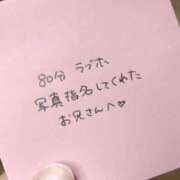 80分 ラブホ
写真指名してくれた
お兄さんへ♡